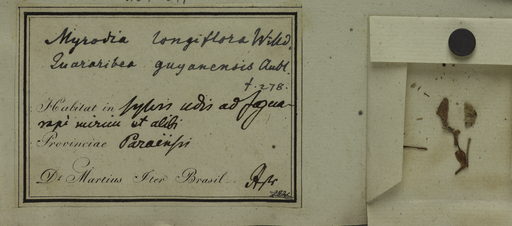 Myrodia longiflora Willd.
Quararibea guyanensis Aubl.
t. 278.
Habitat in sylvis udis ad Jagua-
rapé mirim et alibi
Provinciae Paraensis
Dr. Martius Iter Brasil.